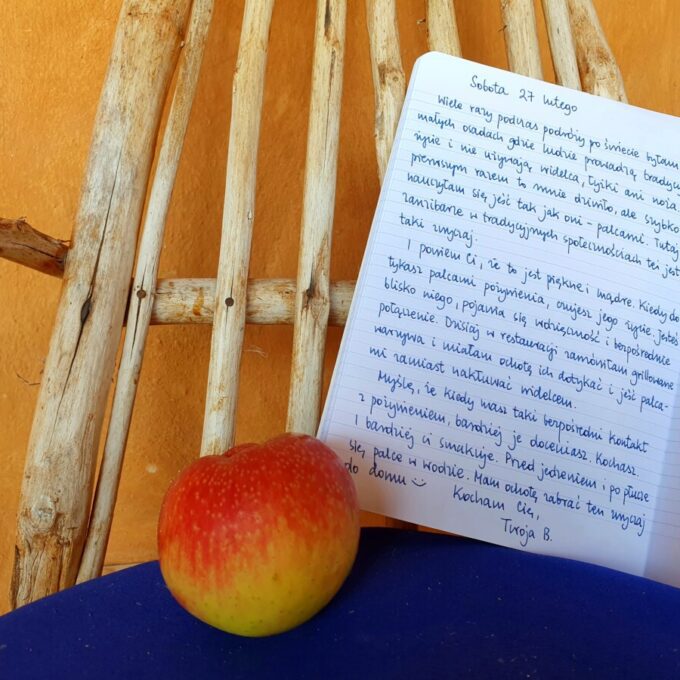 Sobota 27 lutego
Wiele razy podczas podróży po świecie byłam
małych osadach gdzie ludzie prowadzą tradycyj
życie i nie używają widelca, łyżki ani noża
pierwszym razem to mnie dziwiło, ale szybko
nauczyłam się jeść tak jak oni - palcami. Tutaj
zanzibarze w tradycyjnych społecznościach też jest
taki zwyczaj.
I powiem Ci, że to jest piękne i mądre. Kiedy do
tykasz palcami pożywienia, czujesz jego życie. Jesteś
blisko niego, pojawia się wdzięczność i bezpośrednie
połączenie. Dzisiaj w restauracji zamówiłam grillowane
warzywa i miałam ochotę ich dotykać i jeść palca-
mi zamiast nakłuwać widelcem.
Myślę, że kiedy masz taki bezpośredni kontakt
z pożywieniem, bardziej je doceniasz. Kochasz.
I bardziej ci smakuje. Przed jedzeniem i po płucze
się palce w wodzie. Mam ochotę zabrać ten zwyczaj
do domu
Kocham Cię,
Twoja B.